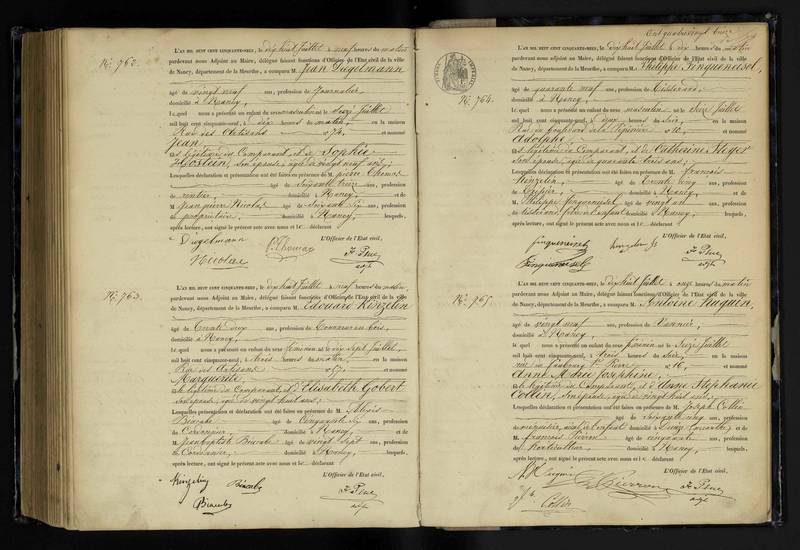 No. 762.
L'AN MIL HUIT CENT CINQUANTE-NEUF, le dix huit Juillet à neuf heures du matin
pardevant nous Adjoint au Maire, délégué faisant fonctions d'Officier de l'Etat civil de la ville
de Nancy, département de la Meurthe, a comparu M. Jean Diegelmann
âgé de vingt neuf ans, profession de Journalier,
domicilié à Nancy,
lequel nous a présenté un enfant du sexe masculin né le Seize Juillet
mil huit cent cinquante-neuf, à dix heures du matin, en la maison
Rue des Artisans n° 74, et nommé
Jean
fils légitime du Comparant, et de Sophie
son épouse, âgée de vingt neuf ans;
Lesquelles déclaration et présentation ont été faites en présence de M. pierre Thomas
âgé de Soixante treize ans, profession
de rentier, domicilié à Nancy, et de
M. Jean pierre Nicolas âgé de Soixante dix ans, profession
de propriétaire, domicilié à Nancy, lesquels,
après lecture, ont signé le présent acte avec nous et le déclarant
L'Officier de l'Etat civil,
Diegelmann
P. Thomas
Nicolas
adjt
No. 763.
L'AN MIL HUIT CENT CINQUANTE-NEUF, le dix huit Juillet à neuf heures du matin,
pardevant nous Adjoint au Maire, délégué faisant fonctions d'Officier de l'Etat civil de la ville
de Nancy, département de la Meurthe, a comparu M. Edouard Kinzelin
âgé de trente six ans, profession de Tourneur en bois,
domicilié à Nancy,
lequel nous a présenté un enfant du sexe féminin né le dix sept Juillet
mil huit cent cinquante-neuf, à trois heures du matin, en la maison
Rue des Artisans n° 57, et nommé
Marguerite
fille légitime du Comparant, et d'Elisabeth Gobert
son épouse, âgée de vingt huit ans;
Lesquelles présentation et déclaration ont été faites en présence de M. Aloyse
âgé de Cinquante six ans, profession
de Cordonnier, domicilié à Nancy, et de
M. Jean baptiste âgé de vingt sept ans, profession
de Cordonnier, domicilié à Nancy, lesquels,
après lecture, ont signé le présent acte avec nous et le déclarant
L'Officier de l'Etat civil,
adjt
No. 764.
L'AN MIL HUIT CENT CINQUANTE-NEUF, le dix huit Juillet à dix heures du matin
pardevant nous Adjoint au Maire, délégué faisant fonctions d'Officier de l'Etat civil de la ville
de Nancy, département de la Meurthe, a comparu M. Philippe Finqueneisel,
âgé de quarante neuf ans, profession de Tisserand,
domicilié à Nancy,
lequel nous a présenté un enfant du sexe masculin né le Seize Juillet
mil huit cent cinquante-neuf, à dix heures du soir, en la maison
Rue du faubourg de la Pépinière n° 10, et nommé
Adolphe
fils légitime du Comparant, et de Catherine
son épouse, âgée de quarante trois ans;
Lesquelles déclaration et présentation ont été faites en présence de M. François
âgé de trente cinq ans, profession
domicilié à Nancy, et de
M. Philippe Finqueneisel, âgé de vingt ans, profession
de tisserand frère de l'enfant domicilié à Nancy, lesquels,
après lecture, ont signé le présent acte avec nous et le déclarant
L'Officier de l'Etat civil,
finqueneisel
Finqueneisel
adjt
No. 765.
L'AN MIL HUIT CENT CINQUANTE-NEUF, le dix huit Juillet à onze heures du matin
pardevant nous Adjoint au Maire, délégué faisant fonctions d'Officier de l'Etat civil de la ville
de Nancy, département de la Meurthe, a comparu M. Antoine
âgé de vingt neuf ans, profession de Vannier,
domicilié à Nancy,
lequel nous a présenté un enfant du sexe féminin né le Seize Juillet
mil huit cent cinquante-neuf, à trois heures du soir, en la maison
rue du faubourg St. Pierre n° 16, et nommé
Anne Marie Joséphine,
fille légitime du Comparant, et d'Anne Stéphanie
Collin, son épouse, âgée de vingt huit ans;
Lesquelles présentation et déclaration ont été faites en présence de M. Joseph Collin
âgé de cinquante cinq ans, profession
de menuisier, aïeul de l'enfant domicilié à et de
M. françois Pierron âgé de cinquante ans, profession
domicilié à Nancy, lesquels,
après lecture, ont signé le présent acte avec nous et le déclarant
L'Officier de l'Etat civil,
Pierron
Collin
adjt